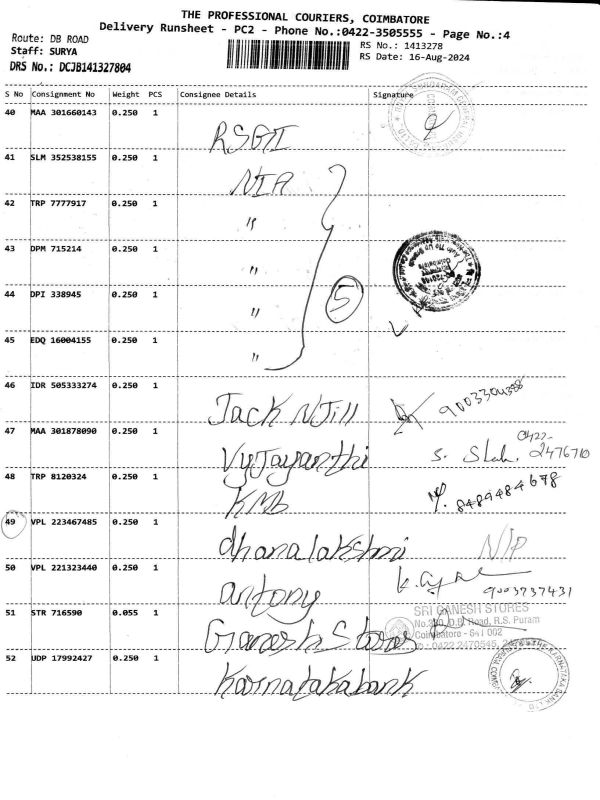 THE PROFESSIONAL COURIERS, COIMBATORE
Delivery Runsheet - PC2 - Phone No.:0422-3505555 - Page No.:4
Route: DB ROAD
Staff: SURYA
DRS No.: DCJB141327804
RS No.: 1413278
RS Date: 16-Aug-2024
S No Consignment No Weight PCS Consignee Details Signature
40 MAA 301660143 0.250 1
41 SLM 352538155 0.250 1 NIA
42 TRP 7777917 0.250 1 "
43 DPM 715214 0.250 1 "
44 DPI 338945 0.250 1 "
5
45 EDQ 16004155 0.250 1 "
46 IDR 505333274 0.250 1 Jack N Jill
47 MAA 301878090 0.250 1 Vyjayanthi 0422-2476710
48 TRP 8120324 0.250 1 KMB 8489484678
49 VPL 223467485 0.250 1 dhanalakshmi N/P
50 VPL 221323440 0.250 1 antony 9003737431
51 STR 716590 0.055 1 Ganesh Stores
SRI GANESH STORES
No.330, D.B. Road, R.S. Puram
Coimbatore - 641 002
52 UDP 17992427 0.250 1 Karnatakabank